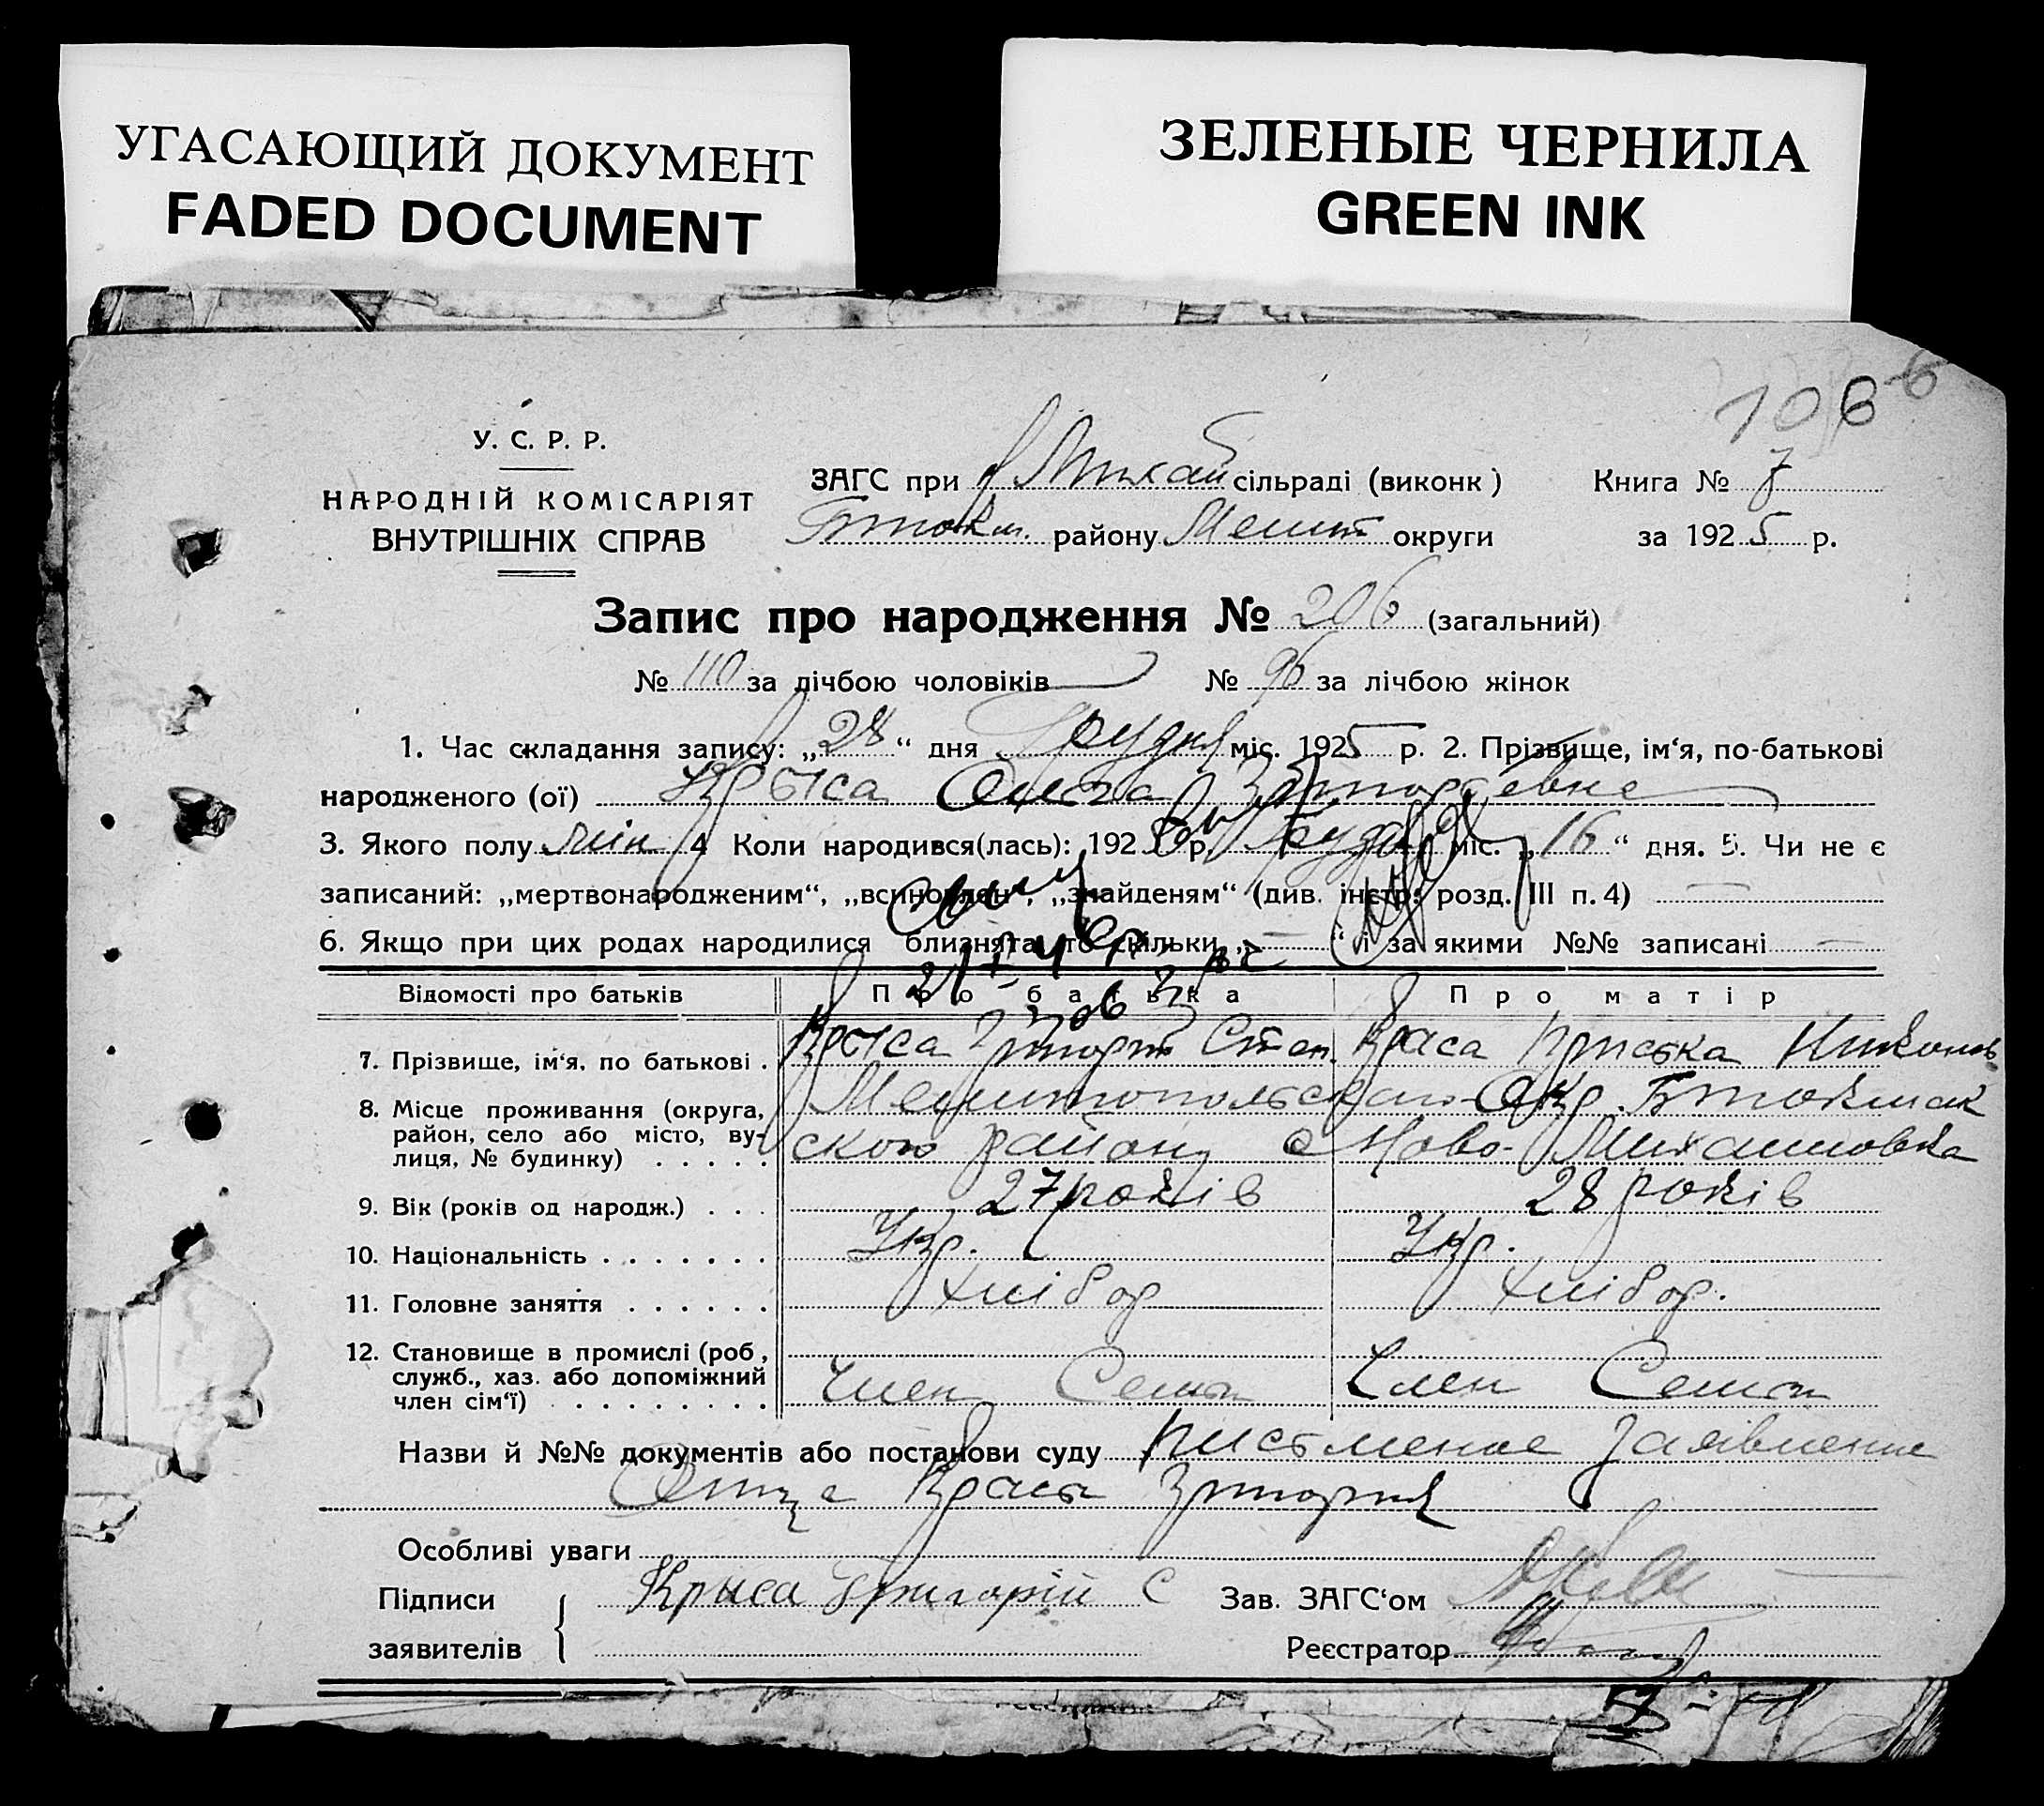 УГАСАЮЩИЙ ДОКУМЕНТ
FADED DOCUMENT
ЗЕЛЕНЫЕ ЧЕРНИЛА
GREEN INK
У. С. Р. Р.
НАРОДНІЙ КОМІСАРІЯТ
ВНУТРІШНІХ СПРАВ
ЗАГС при Михай сільраді (виконк )
Бток м. району Мелит округи
Книга № 7
за 1925 р.
Запис про народження № 206 (загальний)
№ 110 за лічбою чоловіків № 96 за лічбою жінок
1. Час складання запису: „28“ дня Грудня міс. 1925 р. 2. Прізвище, ім‘я, по-батькові
народженого (ої) Крыса Ольга
3. Якого полу жін 4 Коли народився(лась): 1925 р. Грудня міс. „16“ дня. 5. Чи не є
записаний: „мертвонародженим“, „всиновлен“, „знайденям“ (див. інстр. розд. III п. 4)
6. Якщо при цих родах народилися близнята, то скільки „ “ і за якими №№ записані
Відомості про батьків Про батька Про матір
7. Прізвище, ім‘я, по батькові . Крыса Григорій Степ. Краса Приська Никонов
8. Місце проживання (округа, район, село або місто, вулиця, № будинку) . . . . . Мелитопольской Окр. Бтокмак
ского району с Ново-Михайловка
9. Вік (років од народж.) . . . 27 років 28 років
10. Національність . . . . . . . Укр. Укр.
11. Головне заняття . . . . . . хлібор хлібор.
12. Становище в промислі (роб,
служб., хаз. або допоміжний
член сім‘ї) . . . . . . . . Член Семьи Член Семьи
Назви й №№ документів або постанови суду письменное заявление
Отца Крысы Григория
Особливі уваги
Підписи Крыса Григорій С Зав. ЗАГС‘ом
заявителів Реєстратор